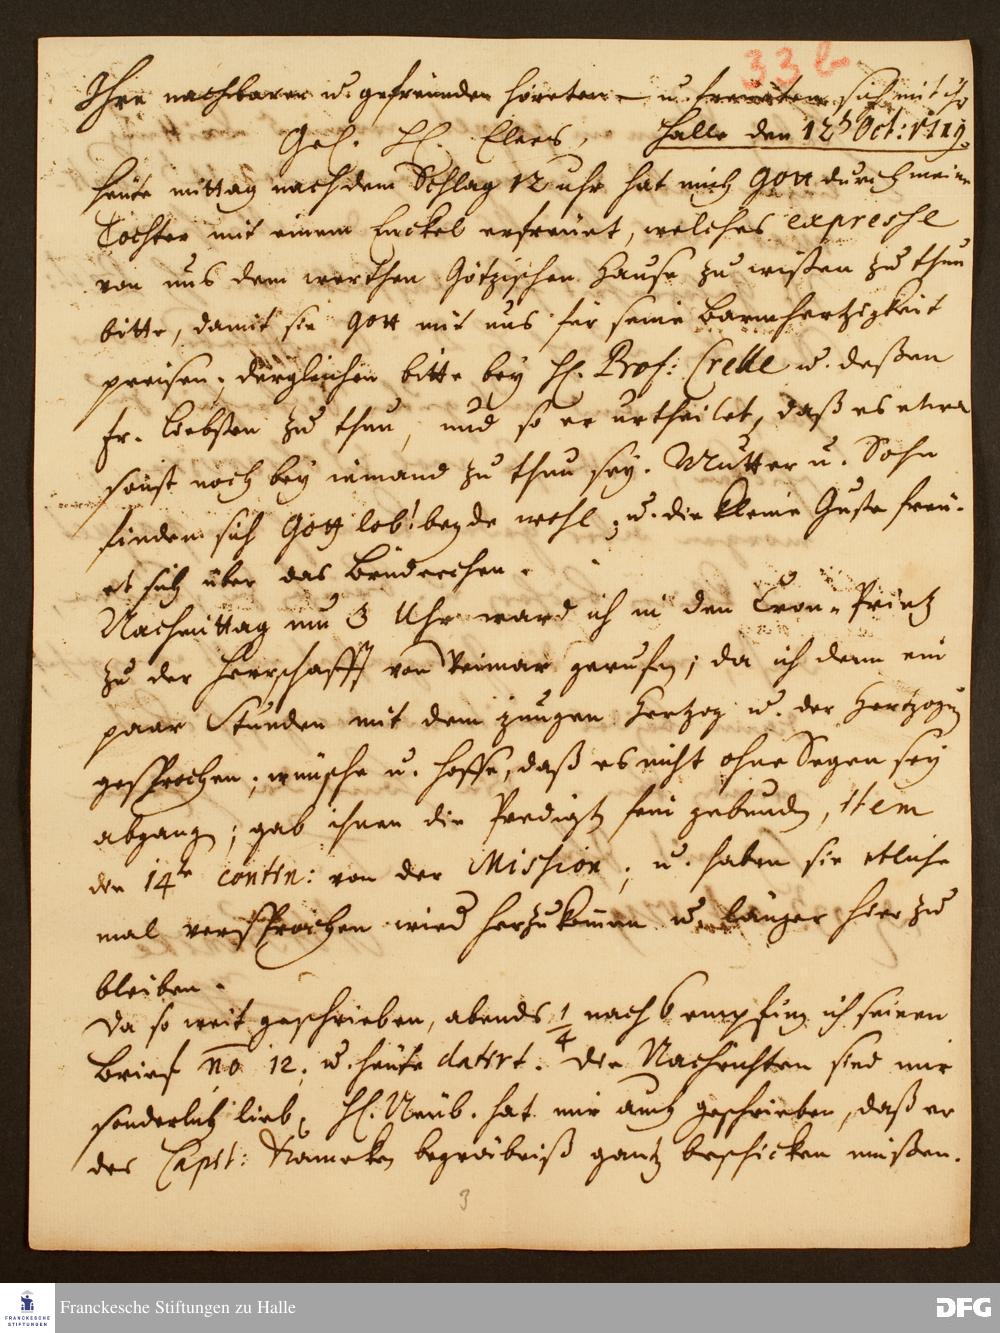 33 b
Ihre nachbaren u. gefreunden höreten – u. freueten sich mit ihr
Gel. H. Elers, Halle den 12t Oct: 1719.
heute mittag nach dem Schlag 12 uhr hat mich Gott durch meine
Tochter mit einem Enckel erfreuet, welches expresse
von uns dem werthen Götzischen Hause zu wißen zu thun
bitte, damit sie Gott mit uns für seine Barmhertzigkeit
preisen; dergleichen bitte bey H. Prof: Crelle u. deßen
Fr. Liebsten zu thun, und so er urtheilet, daß es etwa
sonst noch bey iemand zu thun sey. Mutter u. Sohn
finden sich Gott lob! beyde wohl; u. die kleine Guste freu-
et sich über das Brüderchen.
Nachmittag um 3 Uhr ward ich in den Cron-Printz
zu der Herrschafft von Weimar gerufen; da ich denn ein
paar Stunden mit dem jungen Hertzog u. der Hertzogin
gesprochen; wünsche u. hoffe, daß es nicht ohne Segen sey
abgangen; gab ihnen die Predigten fein gebunden, item
die 14te contin: von der Mission; u. haben sie etliche
mal versprochen wied herzukommen u. länger hier zu
bleiben.
Da so weit geschrieben, abends 1/4 nach 6 empfing ich seinen
Brief no 12. u. heute datirt. Die Nachrichten sind mir
sonderlich lieb; H. Neub. hat mir auch geschrieben, daß er
des Capit: begräbniß gantz beschicken müßen.
3
Franckesche Stiftungen zu Halle
FRANCKESCHE
STIFTUNGEN
DFG